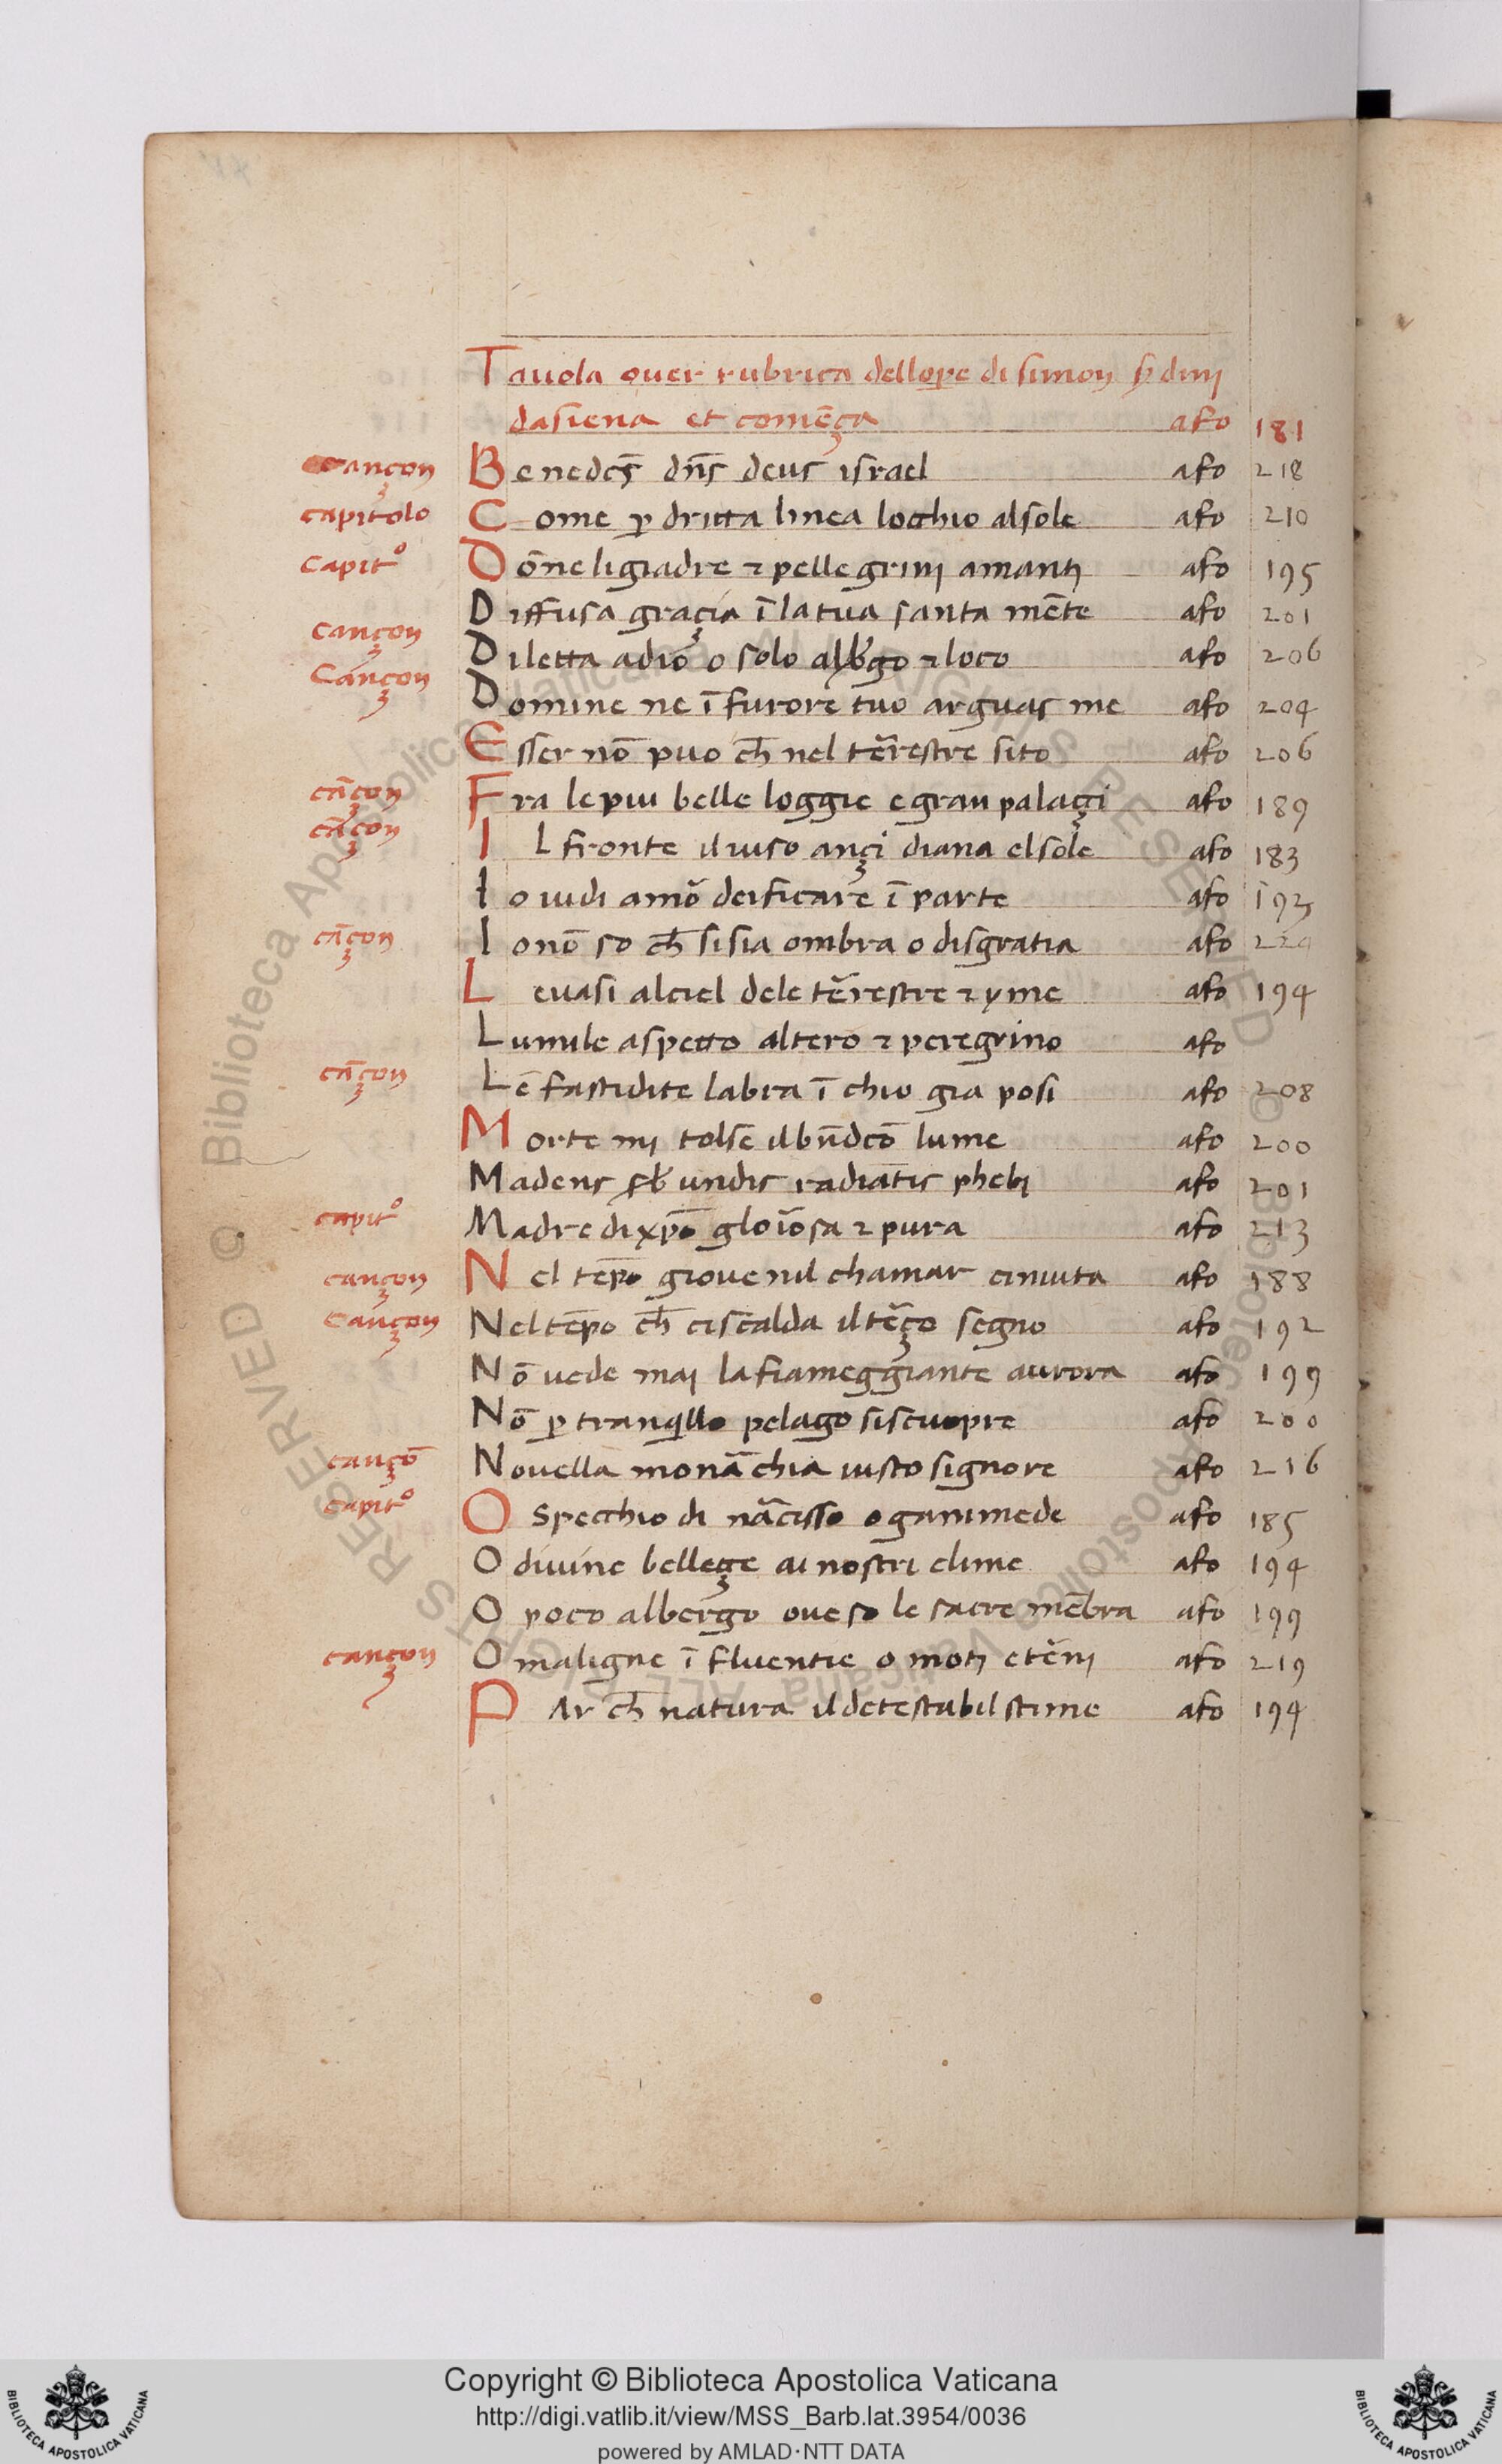 Tauola ouer rubrica dellope di simon s̄ dinj
dasiena et comēça afo 181
cançon Benedcs̄ dn̄s deus israel afo 218
capitolo Come ꝑ dritta linea locchio alsole afo 210
Capitº Dōne ligiadre ⁊ pellegrinj amantj afo 195
Diffusa graçia ī la tua santa mēte afo 201
cançon Diletta adio o solo alb̄go ⁊ loco afo 206
Cançon Domine ne ī furore tuo arguas me afo 204
Esser nō puo ch̄ nel tēr̄estre sito afo 206
cāçon Fra le piu belle loggie e gran palaçi afo 189
cāçon IL fronte il uiso ançi diana el sole afo 183
Io uidi amō deificare ī parte afo 193
cāçon Io nō so ch̄ si sia ombra o disgratia afo
Leuasi alciel dele tēr̄estre ⁊ yme afo 194
Lumile aspetto altero ⁊ peregrino afo
cāçon Lē fastidite labra ī chio gia posi afo 208
Morte mj tolse il bn̄dcō lume afo 200
Madens sb̄ undis radiātis phebj afo 201
capitº Madre di xp̄o gloīosa ⁊ pura afo 213
cançon Nel tēpo giouenil chamar cinuita afo 188
Cançon Nel tēpo ch̄ ciscalda il tēço segno afo 192
Nō uede maj la fiameggiante aurora afo 199
Nō ꝑ tranqillo pelago siscuopre afo 200
cançō Nouella monāchia iusto signore afo 216
capitº O specchio di nācisso o ganimede afo 185
O diuine belleçe ai nostri clime afo 194
O poco albergo oue so le sacre mēbra afo 199
cançon O maligne ī fluentie o motj etēnj afo 219
PAr ch̄ natura il detestabil stime afo 194
Copyright © Biblioteca Apostolica Vaticana
http://digi.vatlib.it/view/MSS_Barb.lat.3954/0036
powered by AMLAD·NTT DATA
BIBLIOTECA APOSTOLICA VATICANA
BIBLIOTECA APOSTOLICA VATICANA